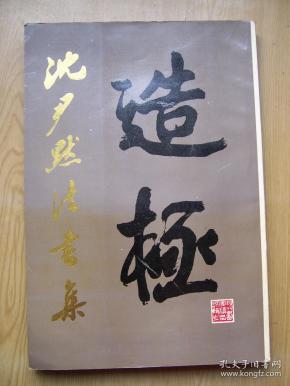 造極
沈尹默法書集
孔夫子旧书网